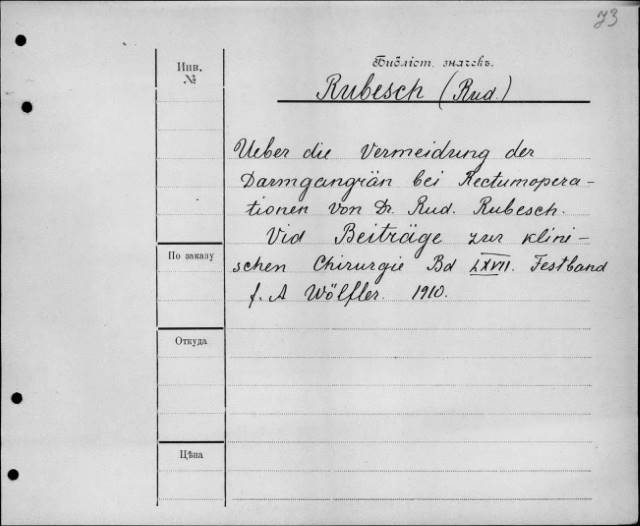 73
Библіот. значекъ.
Инв.
№
Rubesch (Rud.)
Ueber die Vermeidung der
Darmgangrän bei Rectumopera-
tionen von Dr. Rud. Rubesch.
Vid Beiträge zur klini-
schen Chirurgie Bd LXVII. Festband
f. A Wölfler. 1910.
По заказу
Откуда
Цѣна